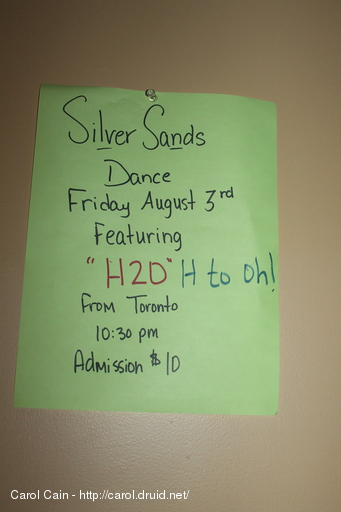 Silver Sands
Dance
Friday August 3rd
Featuring
"H2O" H to Oh!
From Toronto
10:30 pm
Admission $10
Carol Cain - http://carol.druid.net/